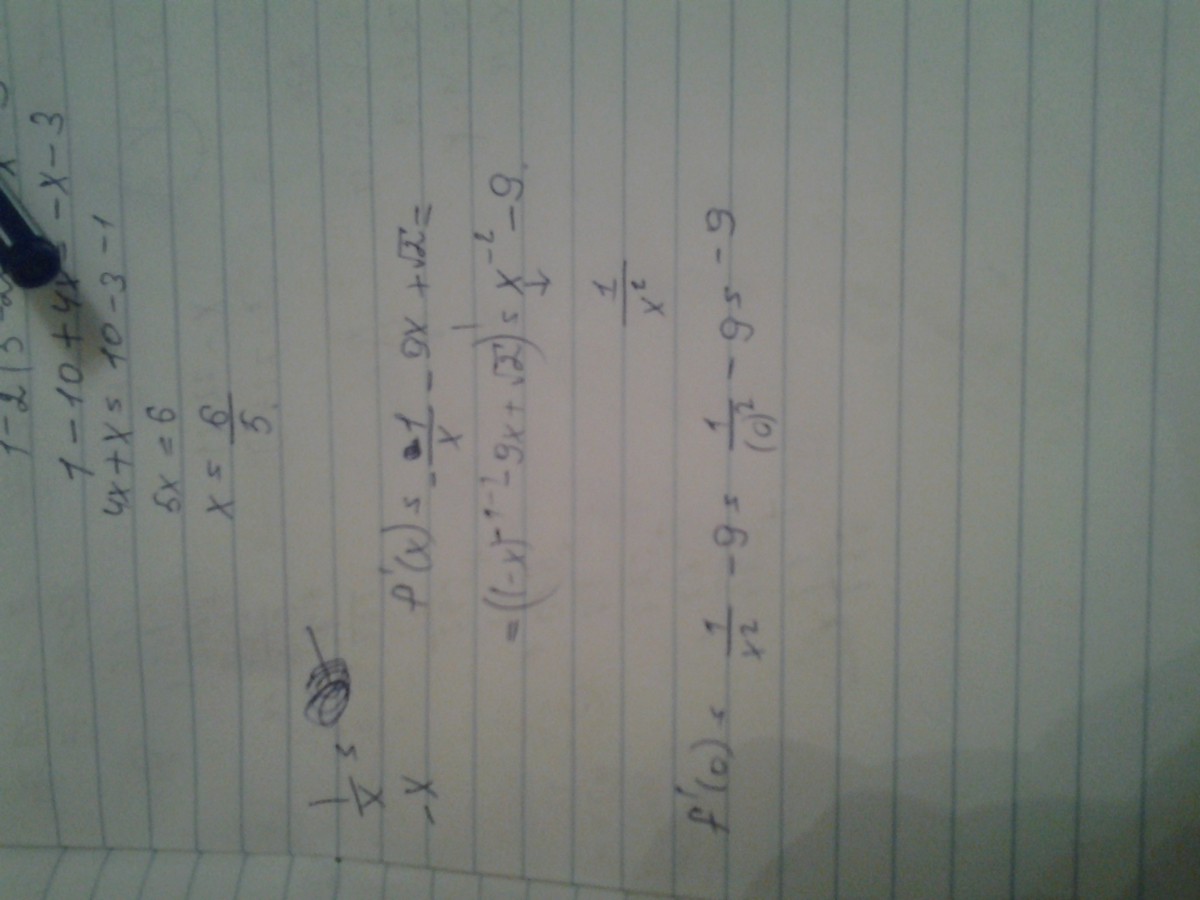 1 - 10 + 4x = -x - 3
4x + x = 10 - 3 - 1
5x = 6
x = 6/5
1/x =
-x
f'(x) = - 1/x - 9x + √2 =
= ((-x)^-1-1 - 9x + √2)' = x^-2 - 9.
↓
1/x²
f'(0) = 1/x² - 9 = 1/(0)² - 9 = -9